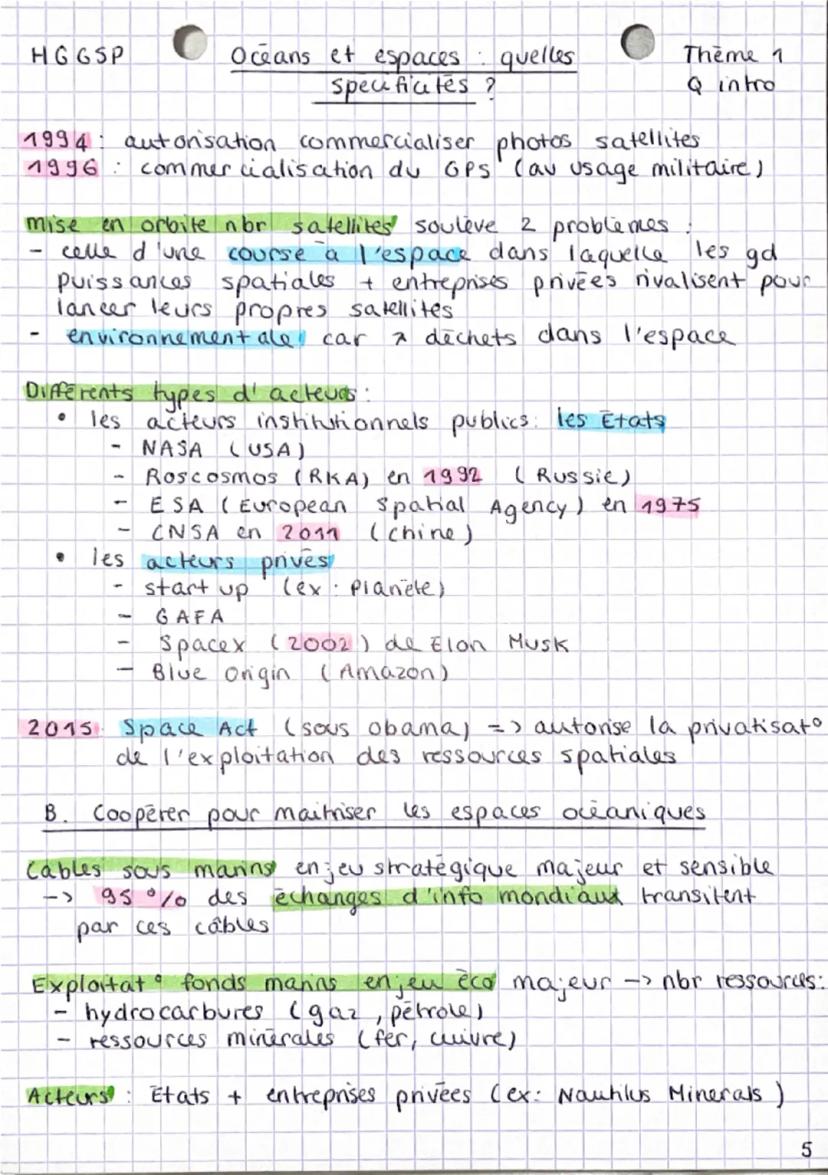 HGGSP
Océans et espaces : quelles
spécificités ?
Thème 1
Q intro
1994 : autorisation commercialiser photos satellites
1996 : commercialisation du GPS (av usage militaire)
mise en orbite nbr satellites soulève 2 problèmes :
- celle d'une course à l'espace dans laquelle les gd
puissances spatiales + entreprises privées rivalisent pour
lancer leurs propres satellites
- environnementale car ↗ déchets dans l'espace
Différents types d'acteurs :
• les acteurs institutionnels publics : les États
- NASA (USA)
- Roscosmos (RKA) en 1992 (Russie)
- ESA (European Spatial Agency) en 1975
- CNSA en 2011 (Chine)
• les acteurs privés
- start up (ex : Planète)
- GAFA
- SpaceX (2002) de Elon Musk
- Blue Origin (Amazon)
2015 : Space Act (sous Obama) => autorise la privatisat°
de l'exploitation des ressources spatiales
B. Coopérer pour maitriser les espaces océaniques
Câbles sous marins enjeu stratégique majeur et sensible
-> 95 % des échanges d'info mondiaux transitent
par ces câbles
Exploitat° fonds marins enjeu éco majeur -> nbr ressources :
- hydrocarbures (gaz, pétrole)
- ressources minérales (fer, cuivre)
Acteurs : États + entreprises privées (ex : Nautilus Minerals)
5